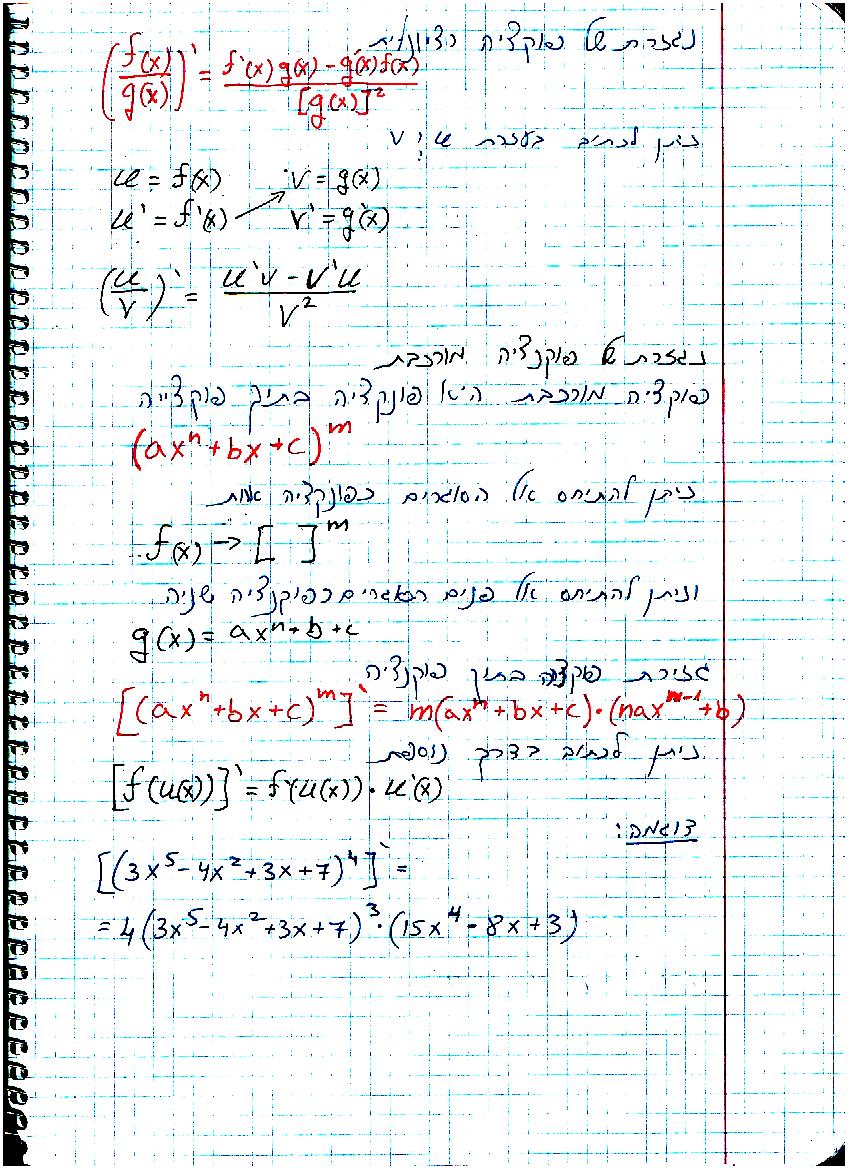 נגזרת של פוקציה רציונלית
(f(x)/g(x))' = (f'(x)g(x) - g'(x)f(x))/[g(x)]²
ניתן לכתוב בעזרת u ו v
u = f(x) v = g(x)
u' = f'(x) v' = g'(x)
(u/v)' = (u'v - v'u)/v²
נגזרת של פוקנציה מורכבת
פוקציה מורכבת היא פונקציה בתוך פוקצייה
(axⁿ + bx + c)ᵐ
ניתן להתיחס אל הסוגרים כפונקציה אחת
f(x) → [ ]ᵐ
וניתן להתיחס אל פנים הסוגרים כפוקנציה שניה
g(x) = axⁿ + b + c
גזירת פוקציה בתוך פוקנציה
[(axⁿ + bx + c)ᵐ]' = m(axⁿ + bx + c)·(naxᵐ⁻¹ + b)
ניתן לכתוב בדרך נוספת
[f(u(x))]' = f'(u(x))·u'(x)
דוגמה:
[(3x⁵ - 4x² + 3x + 7)⁴]' =
= 4(3x⁵ - 4x² + 3x + 7)³·(15x⁴ - 8x + 3)